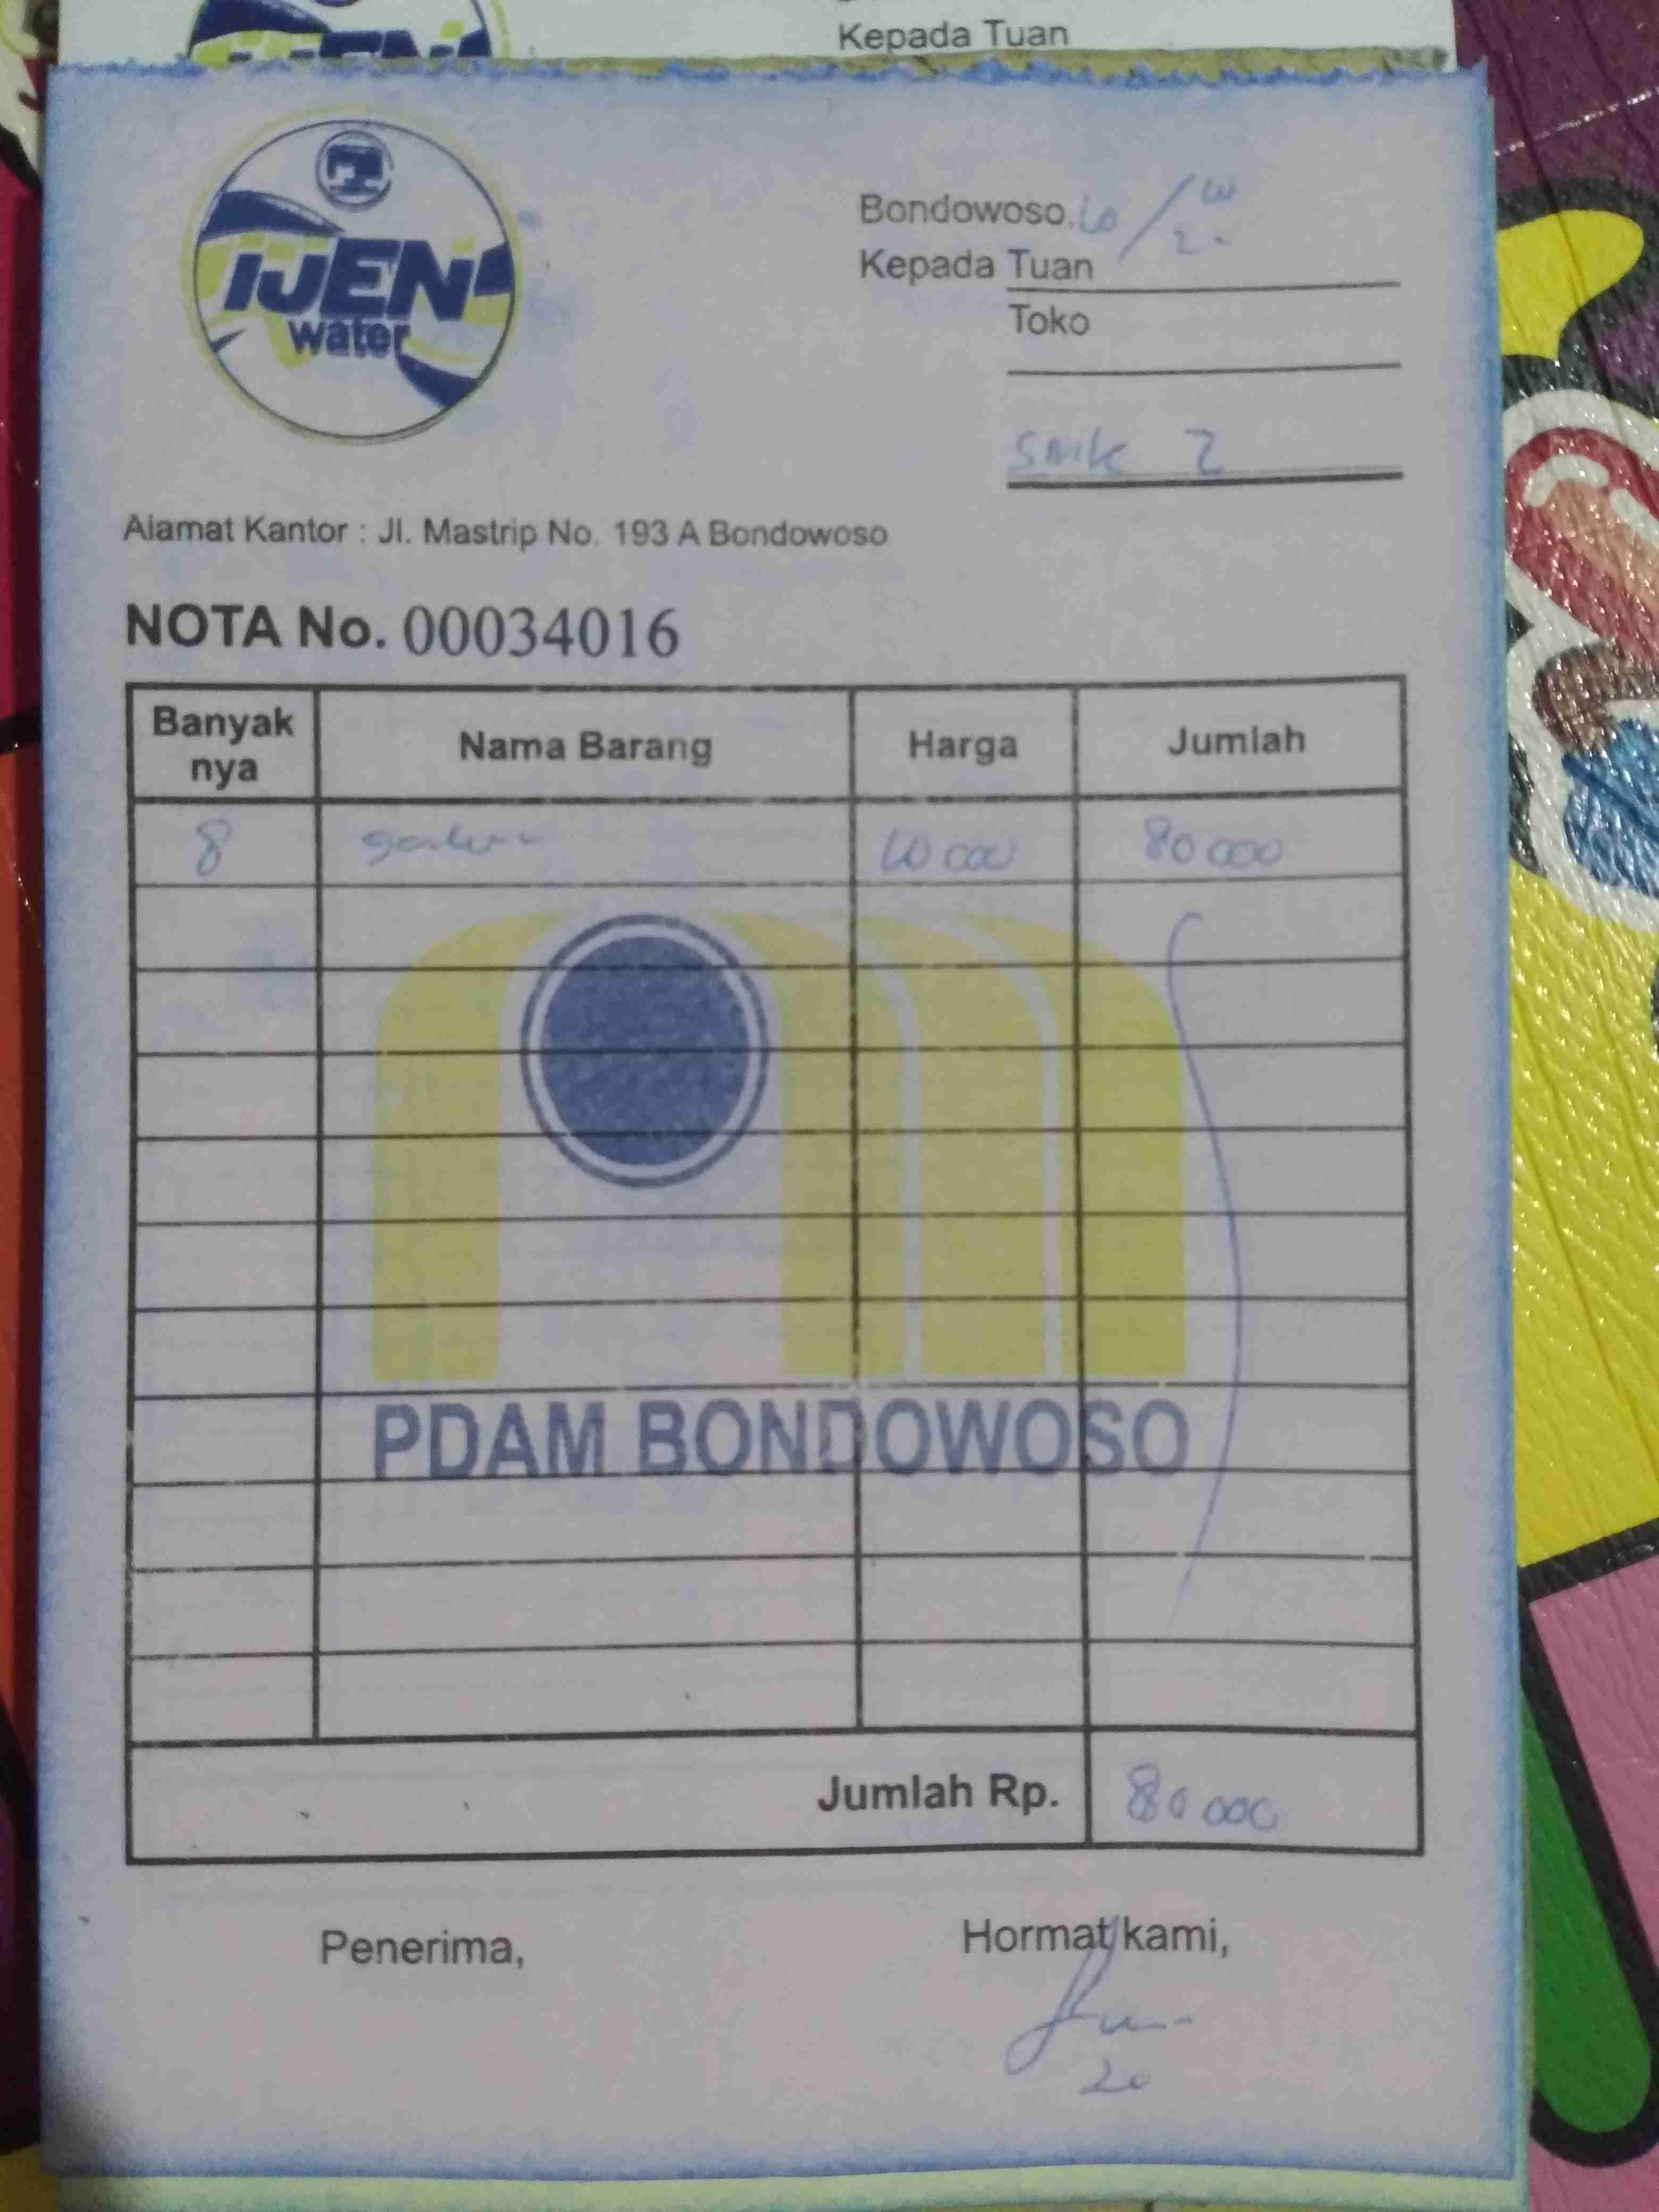 Kepada Tuan
IJEN
water
Bondowoso,
Kepada Tuan
Toko
Alamat Kantor : Jl. Mastrip No. 193 A Bondowoso
NOTA No. 00034016
Banyak nya Nama Barang Harga Jumlah
8 galon 10 000 80 000
PDAM BONDOWOSO
Jumlah Rp. 80 000
Penerima, Hormat kami,